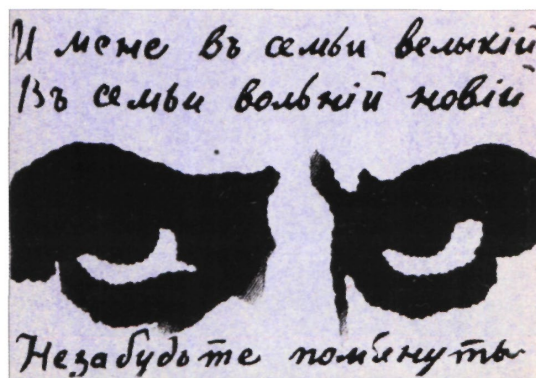 И мене въ семьи велыкій
Въ семьи вольній новій
Незабудьте пом'януты